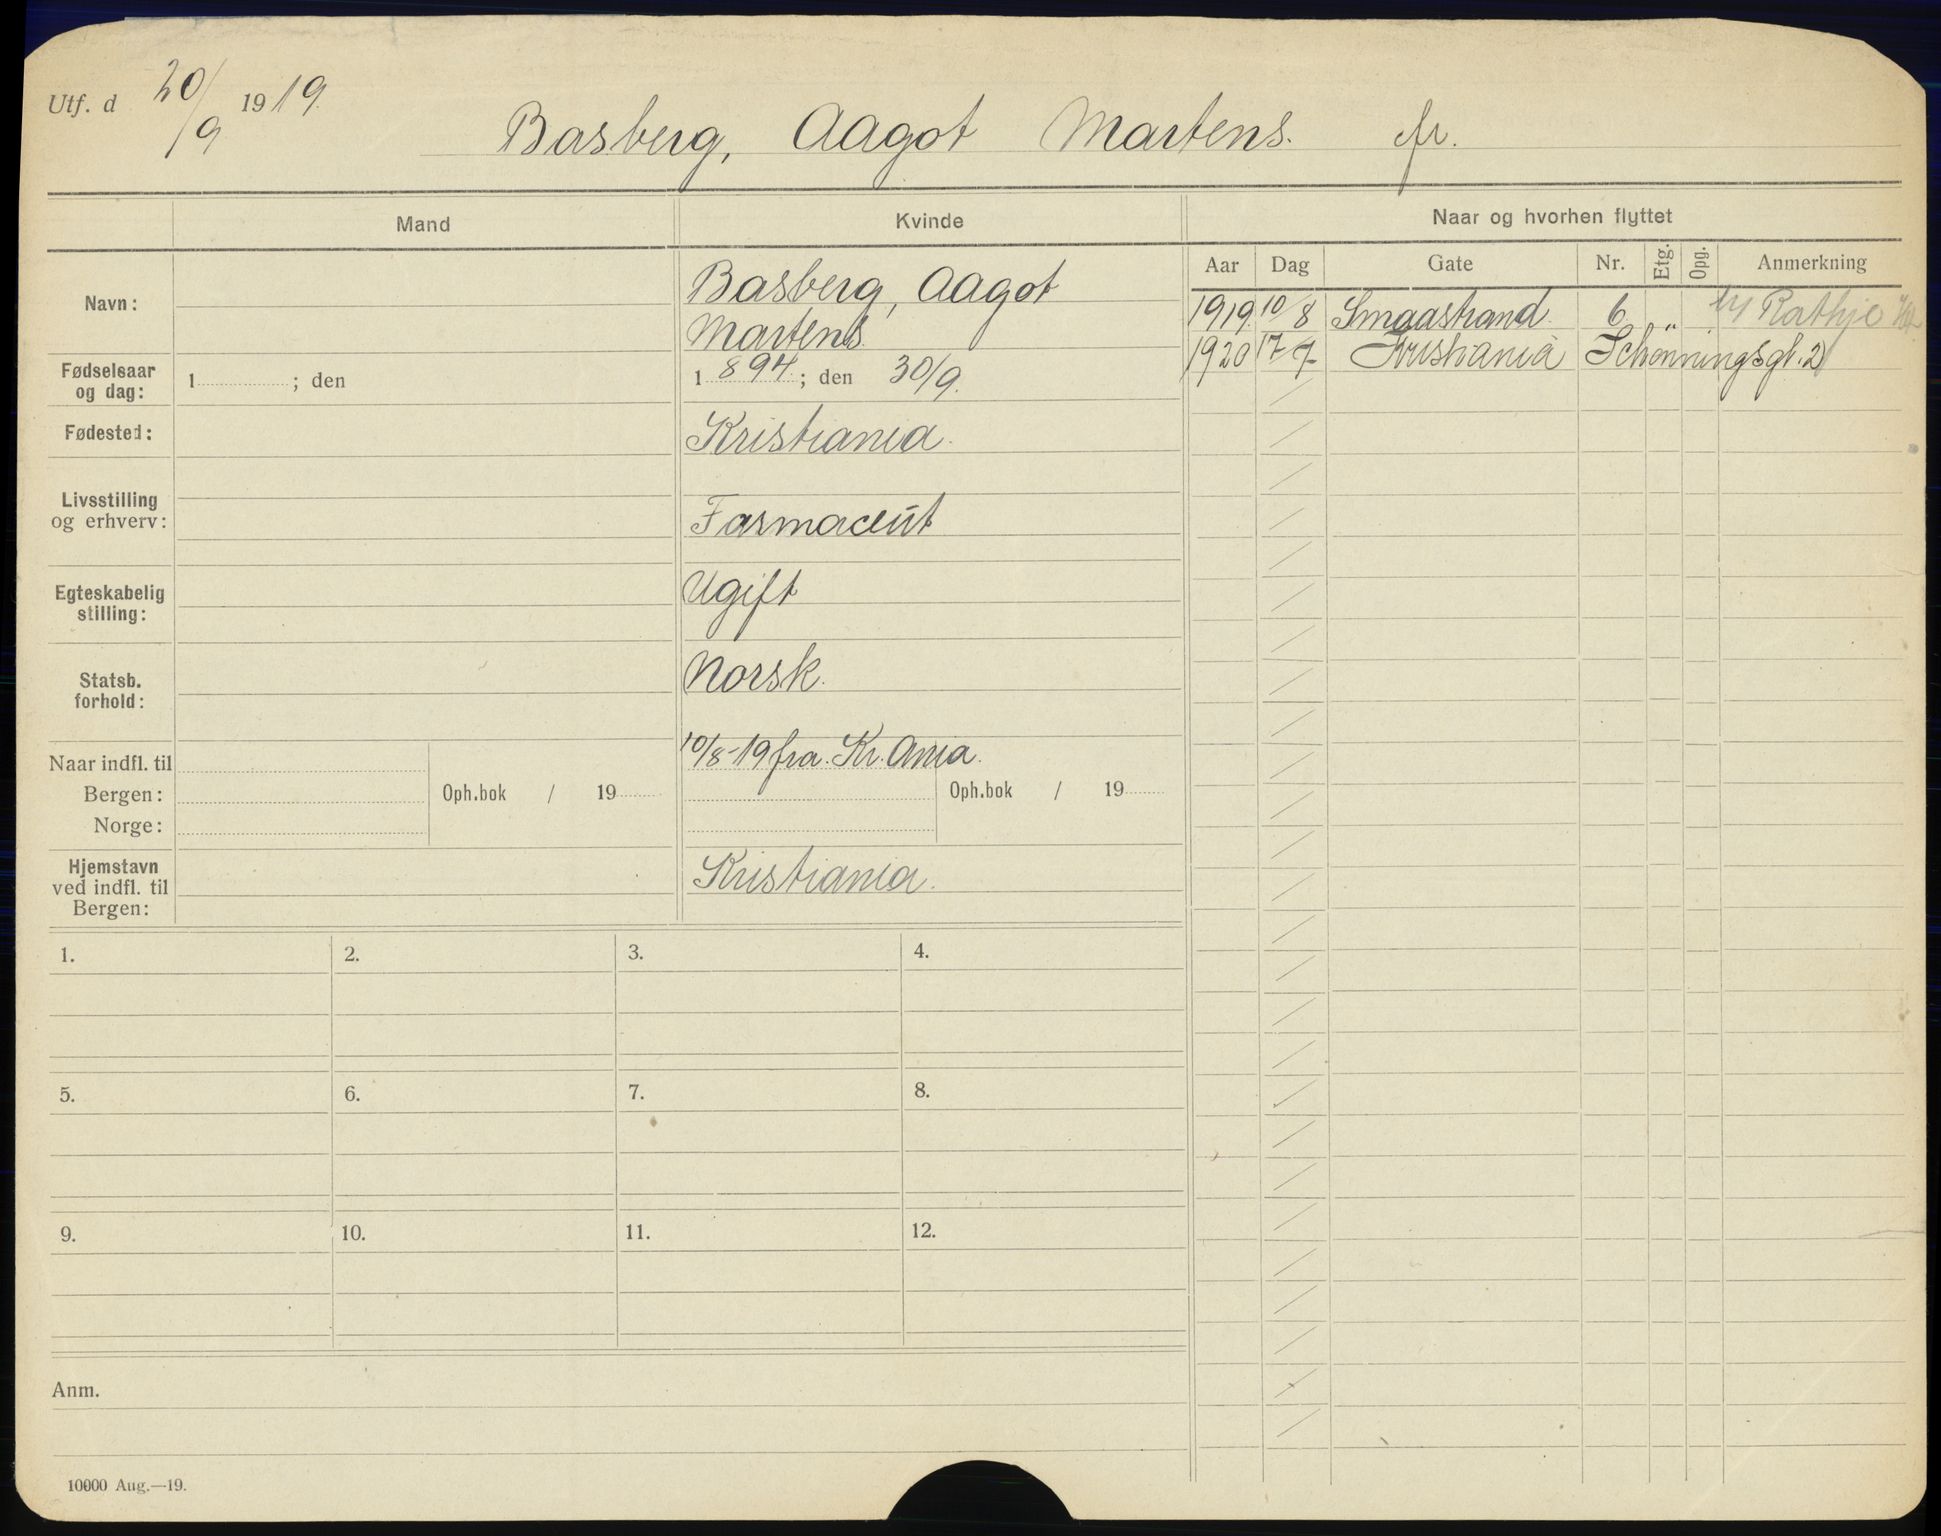 Utf. d 20/9 1919.
Basberg, Aagot Martens. fr.
Mand
Kvinde
Naar og hvorhen flyttet
Aar Dag Gate Nr. Etg. Opg. Anmerkning
Navn:
Basberg, Aagot
Martens
1919 10/8 Smaastrand 6 " Rathje
1920 17/7 Kristiania Schønningsgt. 2
Fødselsaar
og dag:
1 ; den
1894; den 30/9.
Fødested:
Kristiania.
Livsstilling
og erhverv:
Farmaceut
Egteskabelig
stilling:
Ugift
Statsb.
forhold:
Norsk.
Naar indfl. til
Bergen:
Norge:
Oph.bok / 19
10/8-19 fra. Kr. Ania.
Oph.bok / 19
Hjemstavn
ved indfl. til
Bergen:
Kristiania.
1. 2. 3. 4.
5. 6. 7. 8.
9. 10. 11. 12.
Anm.
10000 Aug.—19.